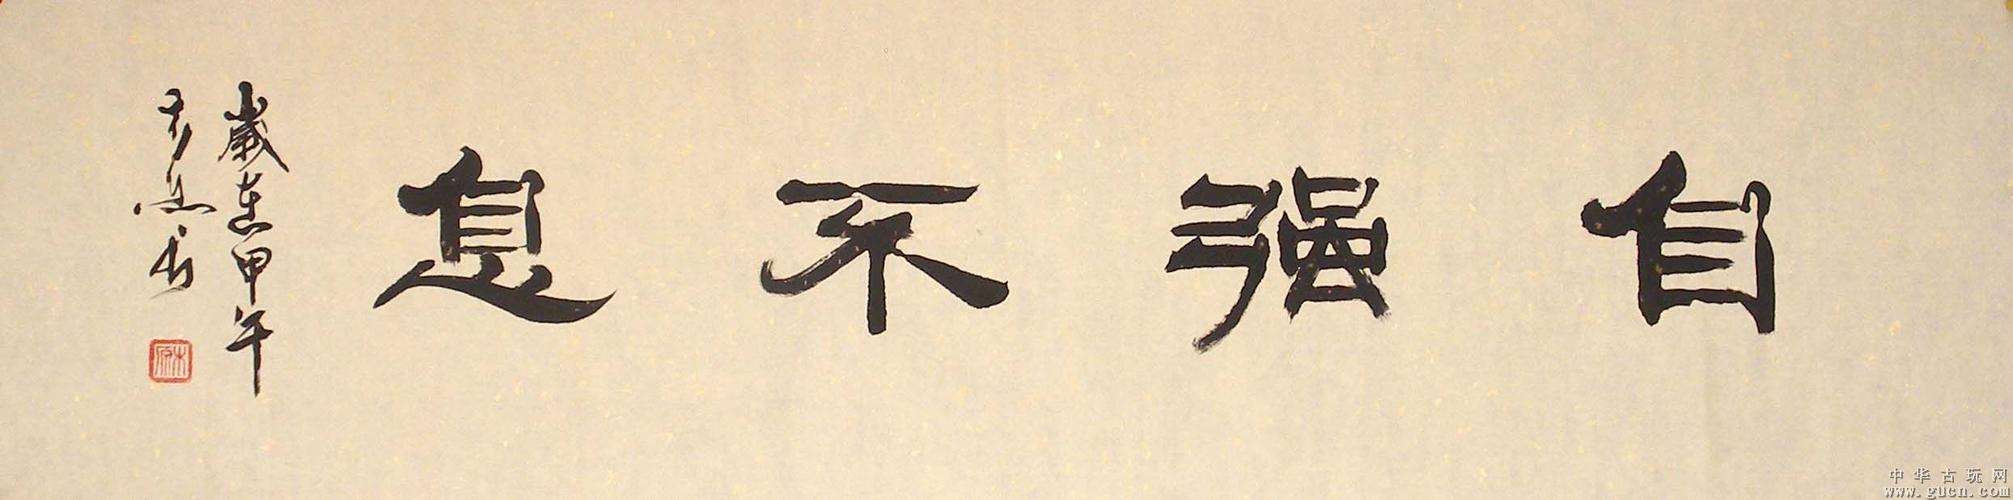 自强不息
歲在甲午
中华古玩网
www.gucn.com